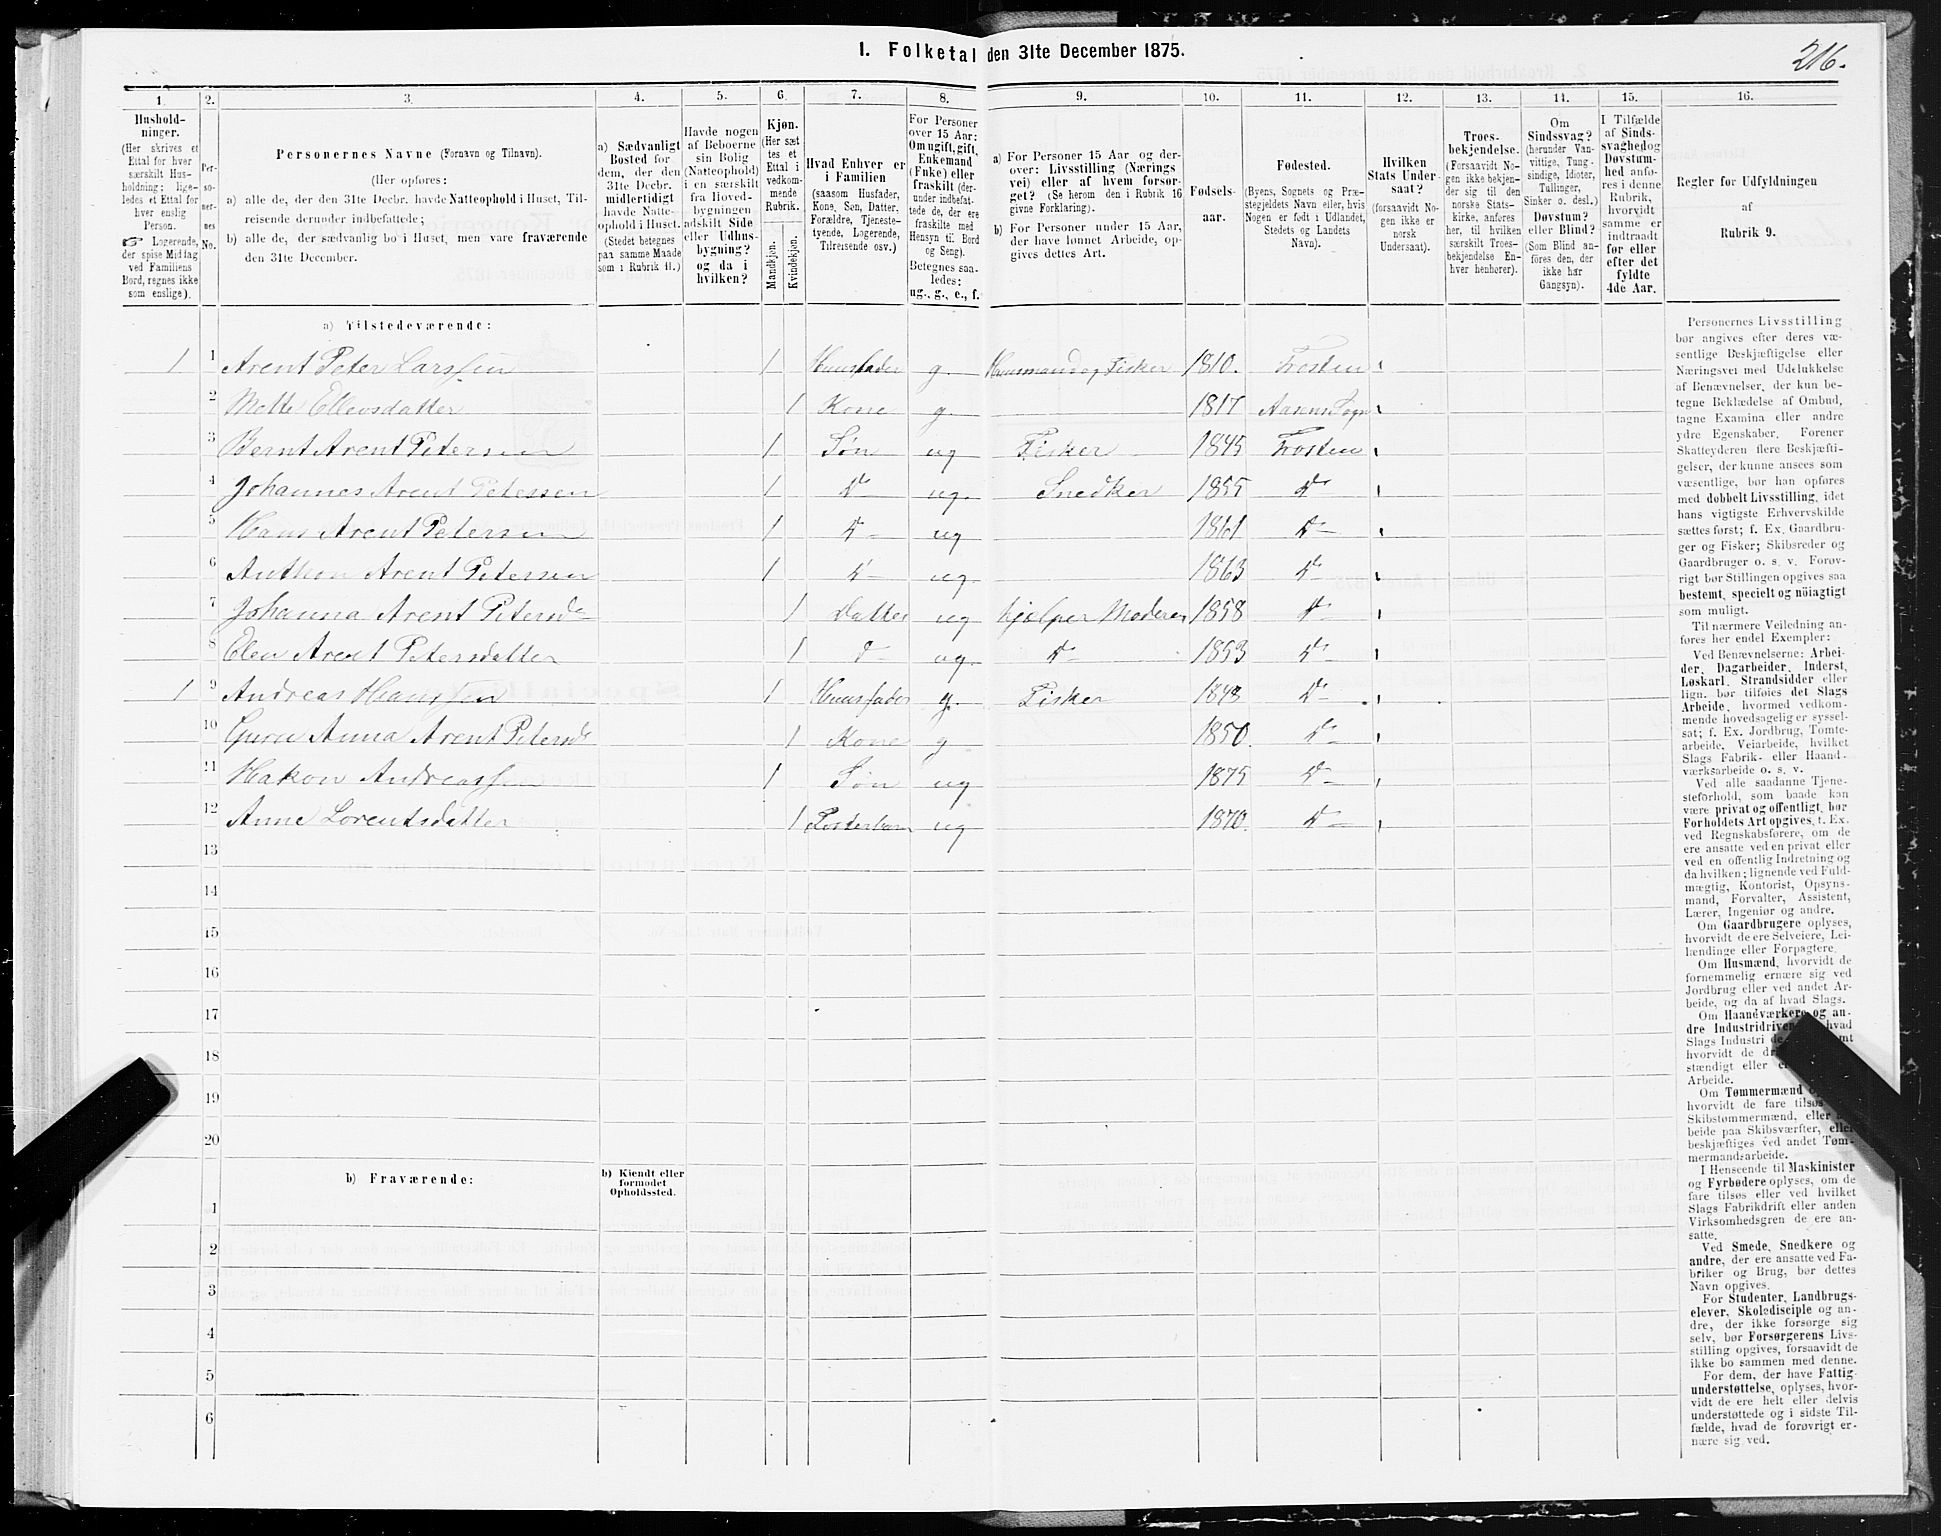 216.
1. Folketal den 31te December 1875.
1. 2. 3. 4. 5. 6. 7. 8. 9. 10. 11. 12. 13. 14. 15. 16.
Husholdninger.
(Her skrives et
Ettal for hver
særskilt Husholdning; ligeledes et Ettal for
hver enslig
Person.
☞ Logerende,
der spise Middag
ved Familiens
Bord, regnes ikke
som enslige).
Personernes No.
Personernes Navne (Fornavn og Tilnavn).
(Her opføres:
a) alle de, der den 31te Decbr. havde Natteophold i Huset, Tilreisende derunder indbefattede;
b) alle de, der sædvanlig bo i Huset, men vare fraværende
den 31te December.
a) Sædvanligt
Bosted for
dem, der den
31te Decbr.
midlertidigt
havde Natteophold i Huset.
(Stedet betegnes
paa samme Maade
som i Rubrik 11.)
Havde nogen
af Beboerne
sin Bolig
(Natteophold)
i en særskilt
fra Hovedbygningen
adskilt Side
eller Udhusbygning?
og da i
hvilken?
Kjøn.
(Her sættes et
Ettal i
vedkommende
Rubrik.
Mandkjøn.
Kvindekjøn.
Hvad Enhver er
i Familien
(saasom Husfader,
Kone, Søn, Datter,
Forældre, Tjenestetyende, Logerende,
Tilreisende osv.)
For Personer
over 15 Aar:
Om ugift, gift,
Enkemand
(Enke) eller
fraskilt (derunder indbefattede de, der ere
fraskilte med
Hensyn til Bord
og Seng).
Betegnes saaledes:
ug., g., e., f.
a) For Personer 15 Aar og derover: Livsstilling (Næringsvei) eller af hvem forsørget? (Se herom den i Rubrik 16
givne Forklaring).
b) For Personer under 15 Aar,
der have lønnet Arbeide, opgives dettes Art.
Fødselsaar.
Fødested.
(Byens, Sognets og Præstegjeldets Navn eller, hvis
Nogen er født i Udlandet,
Stedets og Landets
Navn).
Hvilken
Stats Undersaat?
(forsaavidt Nogen ikke er
norsk
Undersaat).
Troesbekjendelse.
(Forsaavidt Nogen ikke bekjender sig til den
norske Statskirke, anføres
her, til hvilken
særskilt Troesbekjendelse Enhver henhører).
Om
Sindssvag?
(herunder Vanvittige, Tungsindige, Idioter,
Tullinger,
Sinker o. desl.)
Døvstum?
eller Blind?
(Som Blind anføres den, der
ikke har
Gangsyn).
I Tilfælde
af Sindssvaghed og
Døvstumhed anføres i denne
Rubrik,
hvorvidt
samme er
indtraadt
før eller
efter det
fyldte
4de Aar.
Regler for Udfyldningen
af
Rubrik 9.
a) Tilstedeværende:
1 1 Arent Peter Larssen 1 Huusfader g. Huusmand og Fisker 1810. Frosten
2 Mette Ellevsdatter 1 Kone g. 1817 Aasens Sogn
3 Bernt Arent Petersen 1 Søn ug Fisker 1845 Frosten
4 Johannes Arent Petessen 1 Do ug. Snedker 1855 Do
5 Hans Arent Petersen 1 Do ug 1861 Do
6 Anthon Arent Petersen 1 Do ug. 1863 Do
7 Johanna Arent Petersd. 1 Datter ug hjelper Moderen 1858 Do
8 Elen Arent Petersdatter 1 Do ug. Do 1853 Do
1 9 Andreas Hanssen 1 Huusfader g. Fisker 1848 Do
10 Guru Anna Arent Petersd. 1 Kone g 1850. Do
11 Hakon Andreassen 1 Søn ug 1875 Do
12 Anne Lorentsdatter 1 Fosterbarn ug 1870. Do
13
14
15
16
17
18
19
20
b) Fraværende:
b) Kjendt eller
formodet
Opholdssted.
1
2
3
4
5
6
Personernes Livsstilling
bør angives efter deres væsentlige Beskjæftigelse eller
Næringsvei med Udelukkelse
af Benævnelser, der kun betegne Beklædelse af Ombud,
tagne Examina eller andre
ydre Egenskaber. Forener
Skatteyderen flere Beskjæftigelser, der kunne ansees som
væsentlige, bør han opføres
med dobbelt Livsstilling, idet
hans vigtigste Erhvervskilde
sættes først; f. Ex. Gaardbruger og Fisker; Skibsreder og
Gaardbruger o. s. v. Forøvrigt bør Stillingen opgives saa
bestemt, specielt og nöiagtigt
som muligt.
Til nærmere Veiledning anføres her endel Exempler:
Ved Benævnelserne: Arbeider, Dagarbeider, Inderst,
Løskarl, Strandsidder eller
lign. bør tilføies det Slags
Arbeide, hvormed vedkommende hovedsagelig er sysselsat; f. Ex. Jordbrug, Tomtearbeide, Veiarbeide, hvilket
Slags Fabrik- eller Haandværksarbeide o. s. v.
Ved alle saadanne Tjenesteforhold, som baade kan
være privat og offentligt, bør
Forholdets Art opgives, f. Ex.
ved Regnskabsførere, om de
ere ansatte ved en privat eller
ved en offentlig Indretning og
da hvilken; lignende ved Fuldmægtig, Kontorist, Opsynsmand, Forvalter, Assistent,
Lærer, Ingeniør og andre.
Om Gaardbrugere oplyses,
hvorvidt de ere Selveiere, Leilændinge eller Forpagtere.
Om Husmænd, hvorvidt de
fornemmelig ernære sig ved
Jordbrug eller ved andet Arbeide, og da af hvad Slags.
Om Haandværkere og andre Industridrivende, hvad
Slags Industri
hvorvidt de
stændigt eller
Arbeide.
Om Tømmermænd
hvorvidt de fare tilsøs
Skibstømmermænd, eller
beide paa Skibsværfter, eller
beskjæftiges ved andet Tømmermandsarbeide.
I Henseende til Maskinister
og Fyrbødere oplyses, om de
fare tilsøs eller ved hvilket
Slags Fabrikdrift eller anden
Virksomhedsgren de ere ansatte.
Ved Smede, Snedkere og
andre, der ere ansatte ved Fabriker og Brug, bør dettes
Navn opgives.
For Studenter, Landbrugselever, Skoledisciple og andre, der ikke forsørge sig
selv, bør Forsørgerens Livsstilling opgives, forsaavidt de
ikke bo sammen med denne.
For dem, der have Fattigunderstøttelse, oplyses, hvorvidt de ere helt eller delvis
understøttede og i sidste Tilfælde, hvad de forøvrigt ernære sig ved.